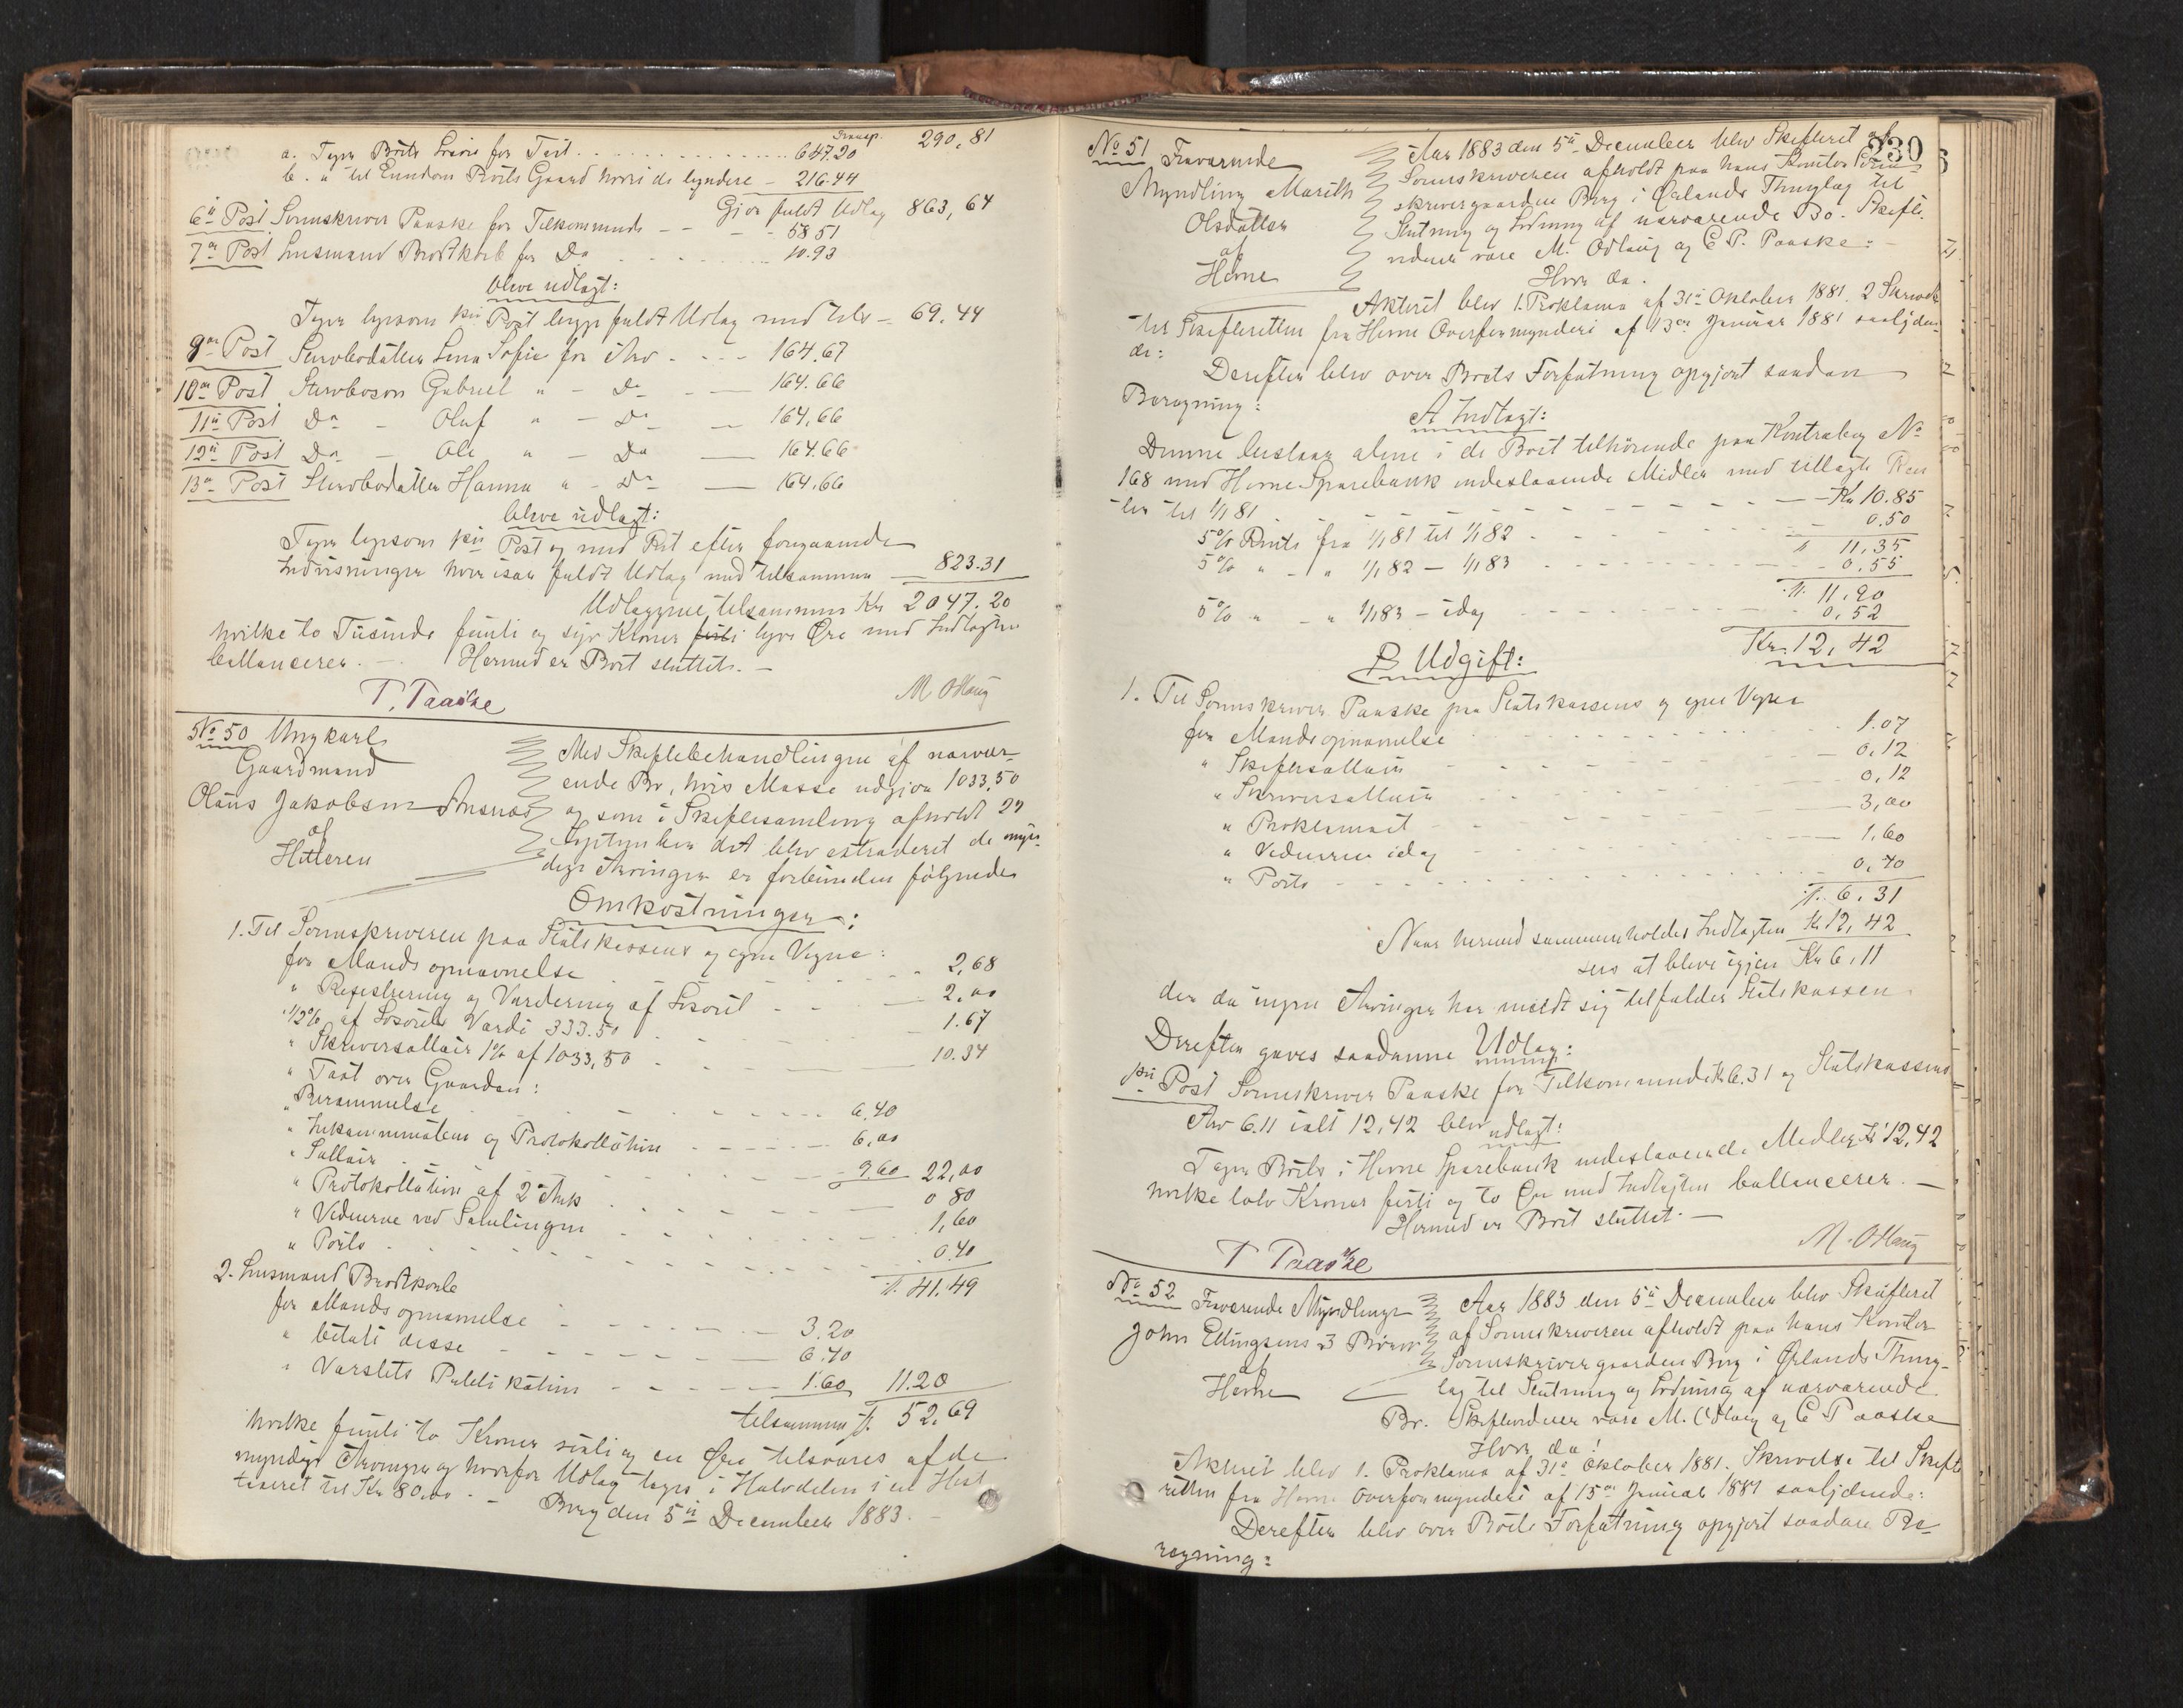 Transp. 290.81
a. Tager Boets Losøre for Taxt 647.20
b. " til Eiendom Boets Gaard hvori de lyndere - 216.44
Gjør fuldt Udlæg 863,64
6te Post Sorenskriver Paaske for Tilkommende - - - 58.51
7de Post Lensmand Brodtkorb for Do 10.93
bleve udlagt:
Tager ligesom 1ste Post begge fuldt Udlæg med tils - 69.44
9de Post Stervbodatter Lena Sofie for Arv - - - 164.67
10de Post Stervboson Gabriel " - Do - - 164.66
11te Post Do - Oluf " - Do - 164,66
12te Post Do - Ole " - Do - 164.66
13de Post Stervbodatter Hanna " - Do - 164,66
bleve udlagt:
Tager ligesom 1ste Post og med Ret efter foregaaende
Indvisninger hver især fuldt Udlæg med tilsammen - 823.31
Udlæggene tilsammen Kr 2047.20
hvilke to Tusinde førti og syv Kroner førti tyve Øre med Indtægten
ballancerer. - Hermed er Boet sluttet. -
T. Paaske M OHaug
No 50 Ungkarl
Gaardmand
Olaus Jakobsen Ansnes
af
Hitteren
Med Skiftebehandlingen af nærvær-
ende Bo, hvis Masse udgjør 1033,50
og som i Skiftesamling afholdt 27
September det blev extraderet de myn-
dige Arvinger er forbunden følgende
Omkostninger:
1. Til Sorenskriveren paa Statskassens og egne Vegne:
for Mands opnævnelse 2,68
" Registrering og Vurdering af Løsøret - - 2.00
" 1/2 % af Løsørets Værdi 333.50 1.67
" Skriversallair 1% af 1033,50 10.34
" Taxt over Gaarden:
" Berammelse 6.40
" Inkamminationen og Protokollation 6.00
" Sallair 9.60 22,00
" Protokollation af 2 Ark 0 80
" Vidnerne ved Samlingen 1,60
" Porto 0.40
Kr. 41.49
2. Lensmand Brodtkorb
for Mands opnævnelse 3.20
" betalt disse 6.40
" Varslets Publikation 1.60 11.20
tilsammen Kr. 52,69
hvilke femti to Kroner sexti og ni Øre tilsvares af de
myndige Arvinger og hvorfor Udlæg tages i Halvdelen i en Hest
taxeret til Kr 80.00. - Berg den 5te December 1883. -
230
No 51 Fraværende
Myndling Marith
Olsdatter
af
Hevne
Aar 1883 den 5te December blev Skifteret af
Sorenskriveren afholdt paa hans Kontor Soren-
skrivergaarden Berg i Ørlands Thinglag til
Slutning og Lodning af nærværende Bo. Skifte-
vidner vare M. Odlaug og C P. Paaske: -
Hvor da.
Akteret blev 1. Proklama af 31te Oktober 1881. 2 Skrivelse
til Skifteretten fra Hevne Overformynderi af 13de Januar 1881 saalyden-
de:
Derefter blev over Boets Forfatning opgjort saadan
Beregning:
A Indtægt:
Denne bestaar alene i de Boet tilhørende paa Kontrabog No
168 med Hevne Sparebank indestaaende Midler med tillagte Ren
ter til 1/1 81 - Kr 10.85
5% Rente fra 1/1 81 til 1/1 82 0.50
" 11,35
5% " - " 1/1 82 - 1/1 83 0.55
Kr. 11.90
5% " - " 1/1 83 - idag 0.52
Kr. 12,42
B Udgift:
1. Til Sorenskriver Paaske paa Statskassens og egne Vegne
for Mandsopnævnelse 1.07
" Skiftesallair 0,12
" Skriversallair 0,12
" Proklamaet 3,00
" Vidnerne idag 1.60
" Porto 0,40
Kr. 6.31
Naar hermed sammenholdes Indtægten Kr 12,42
sees at blive igjen Kr 6.11
der da ingen Arvinger har meldt sig tilfalder Statskassen.
Derefter gaves saadanne Udlæg:
1ste Post Sorenskriver Paaske for Tilkommende Kr 6.31 og Statskassens
Arv 6.11 ialt 12,42 blev udlagt:
Tager Boets i Hevne Sparebank indestaaende Midler Kr 12,42
hvilke tolv Kroner førti og to Øre med Indtægten ballancerer. -
Hermed er Boet sluttet. -
T Paaske M. OHaug
No 52 Fraværende Myndlinge
John Ellingsens 3 Børn
af
Hevne
Aar 1883 den 5te December blev Skifteret
af Sorenskriveren afholdt paa hans Kontor
Sorenskrivergaarden Berg i Ørlands Thing-
lag til Slutning og Lodning af nærværende
Bo. Skiftevidner vare M. Odlaug og C Paaske
Hvor da:
Akteret blev 1. Proklama af 31te Oktober 1881. Skrivelse til Skifte
retten fra Hevne Overformynderi af 15de Januar 1881 saalydende:
Derefter blev over Boets Forfatning opgjort saadan Be-
regning: